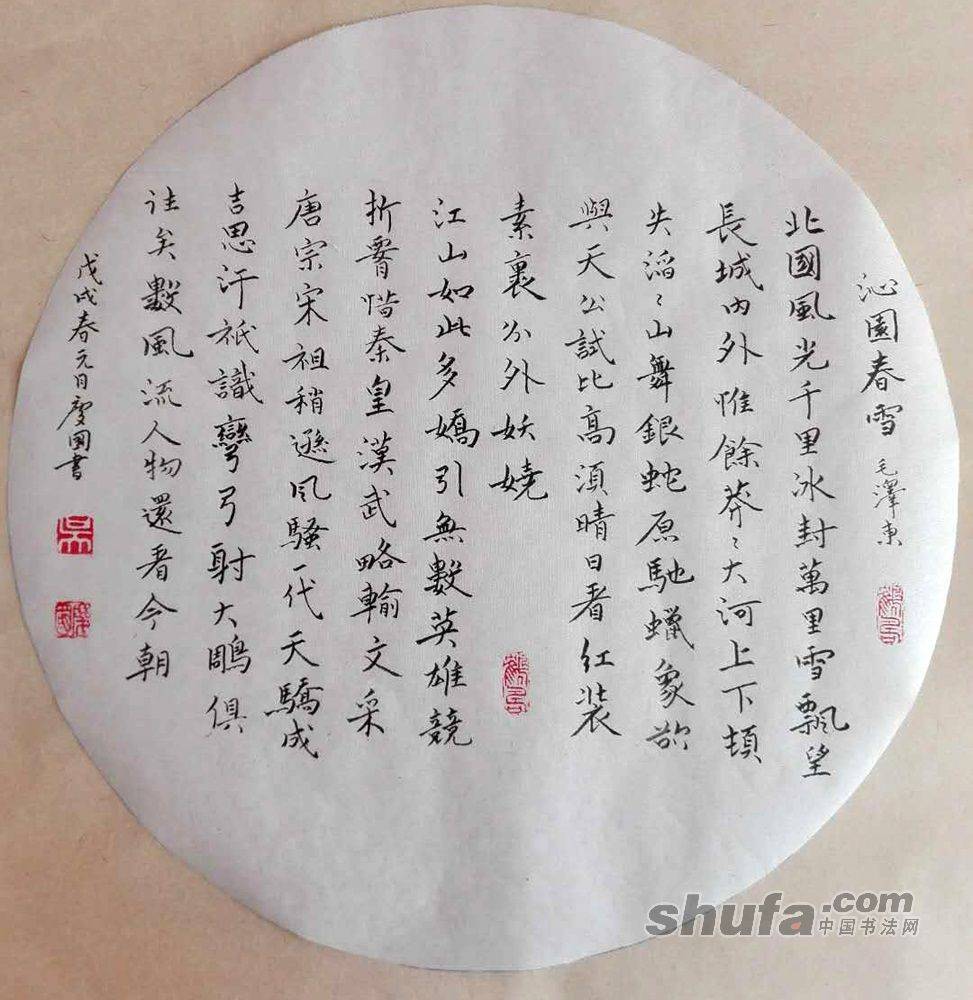 沁園春雪 毛澤東
北國風光千里冰封萬里雪飄望
長城內外惟餘莽〻大河上下頓
失滔〻山舞銀蛇原馳蠟象欲
與天公試比高須晴日看紅裝
素裹分外妖嬈
江山如此多嬌引無數英雄競
折霄惜秦皇漢武略輸文采
唐宗宋祖稍遜風騷一代天驕成
吉思汗祇識彎弓射大鵰俱
往矣數風流人物還看今朝
戊戌春元日慶國書
吳
shufa.com
中国书法网